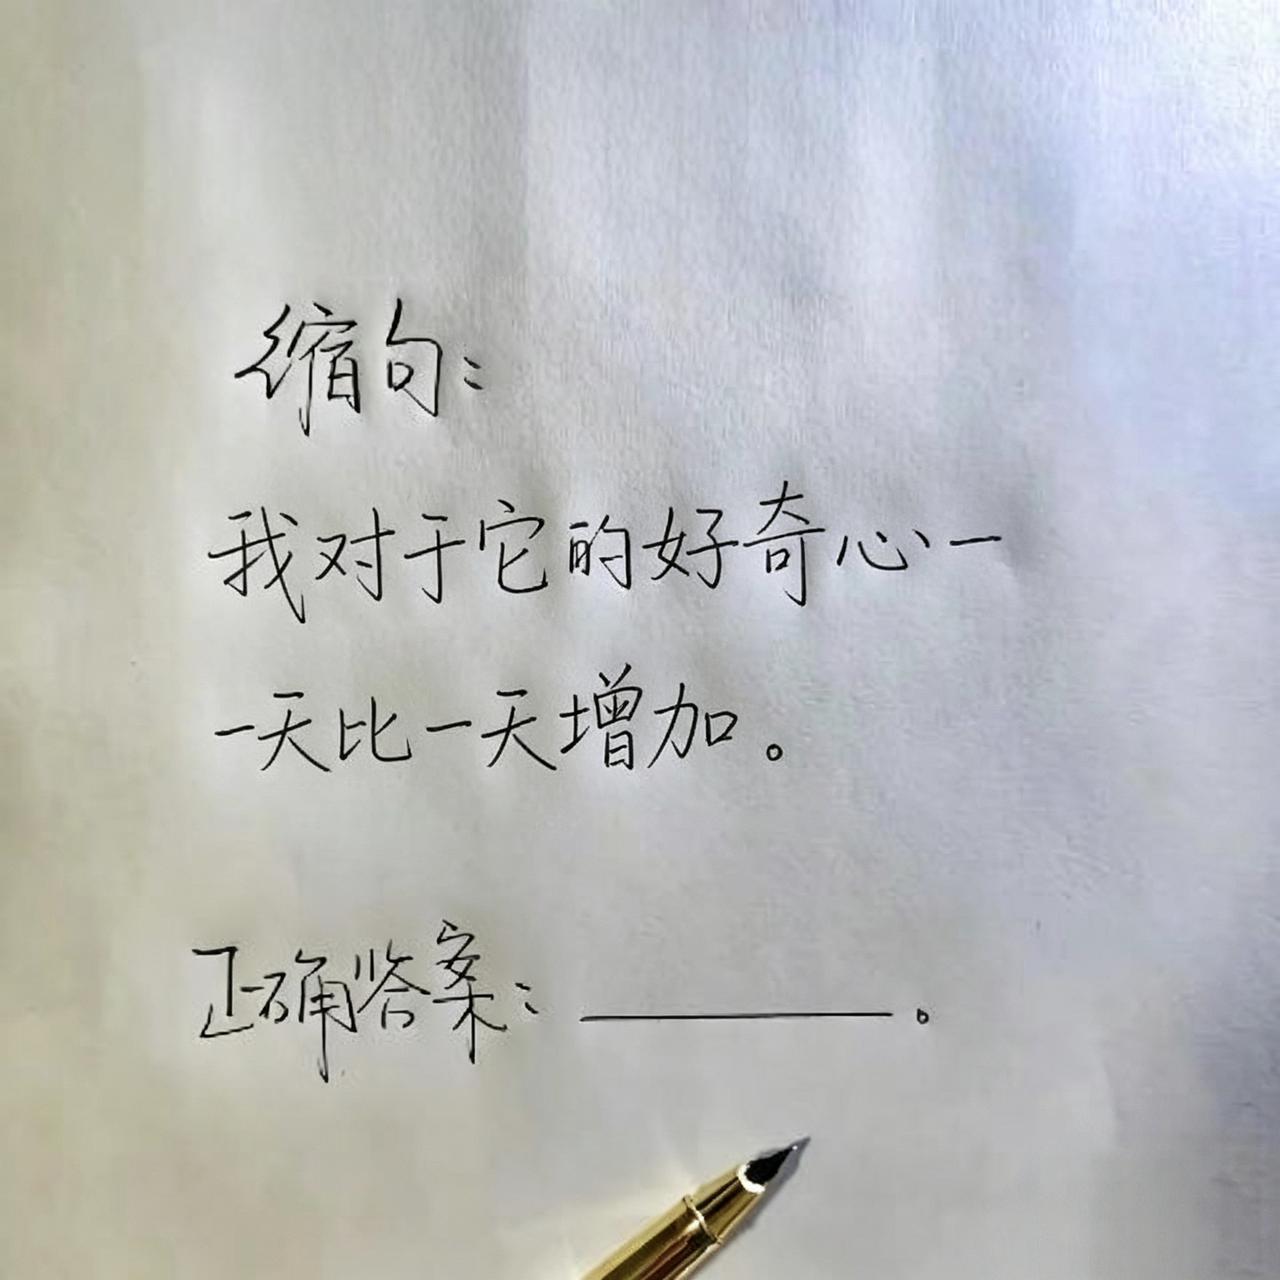 缩句:
我对于它的好奇心一
一天比一天增加。
正确答案:______。